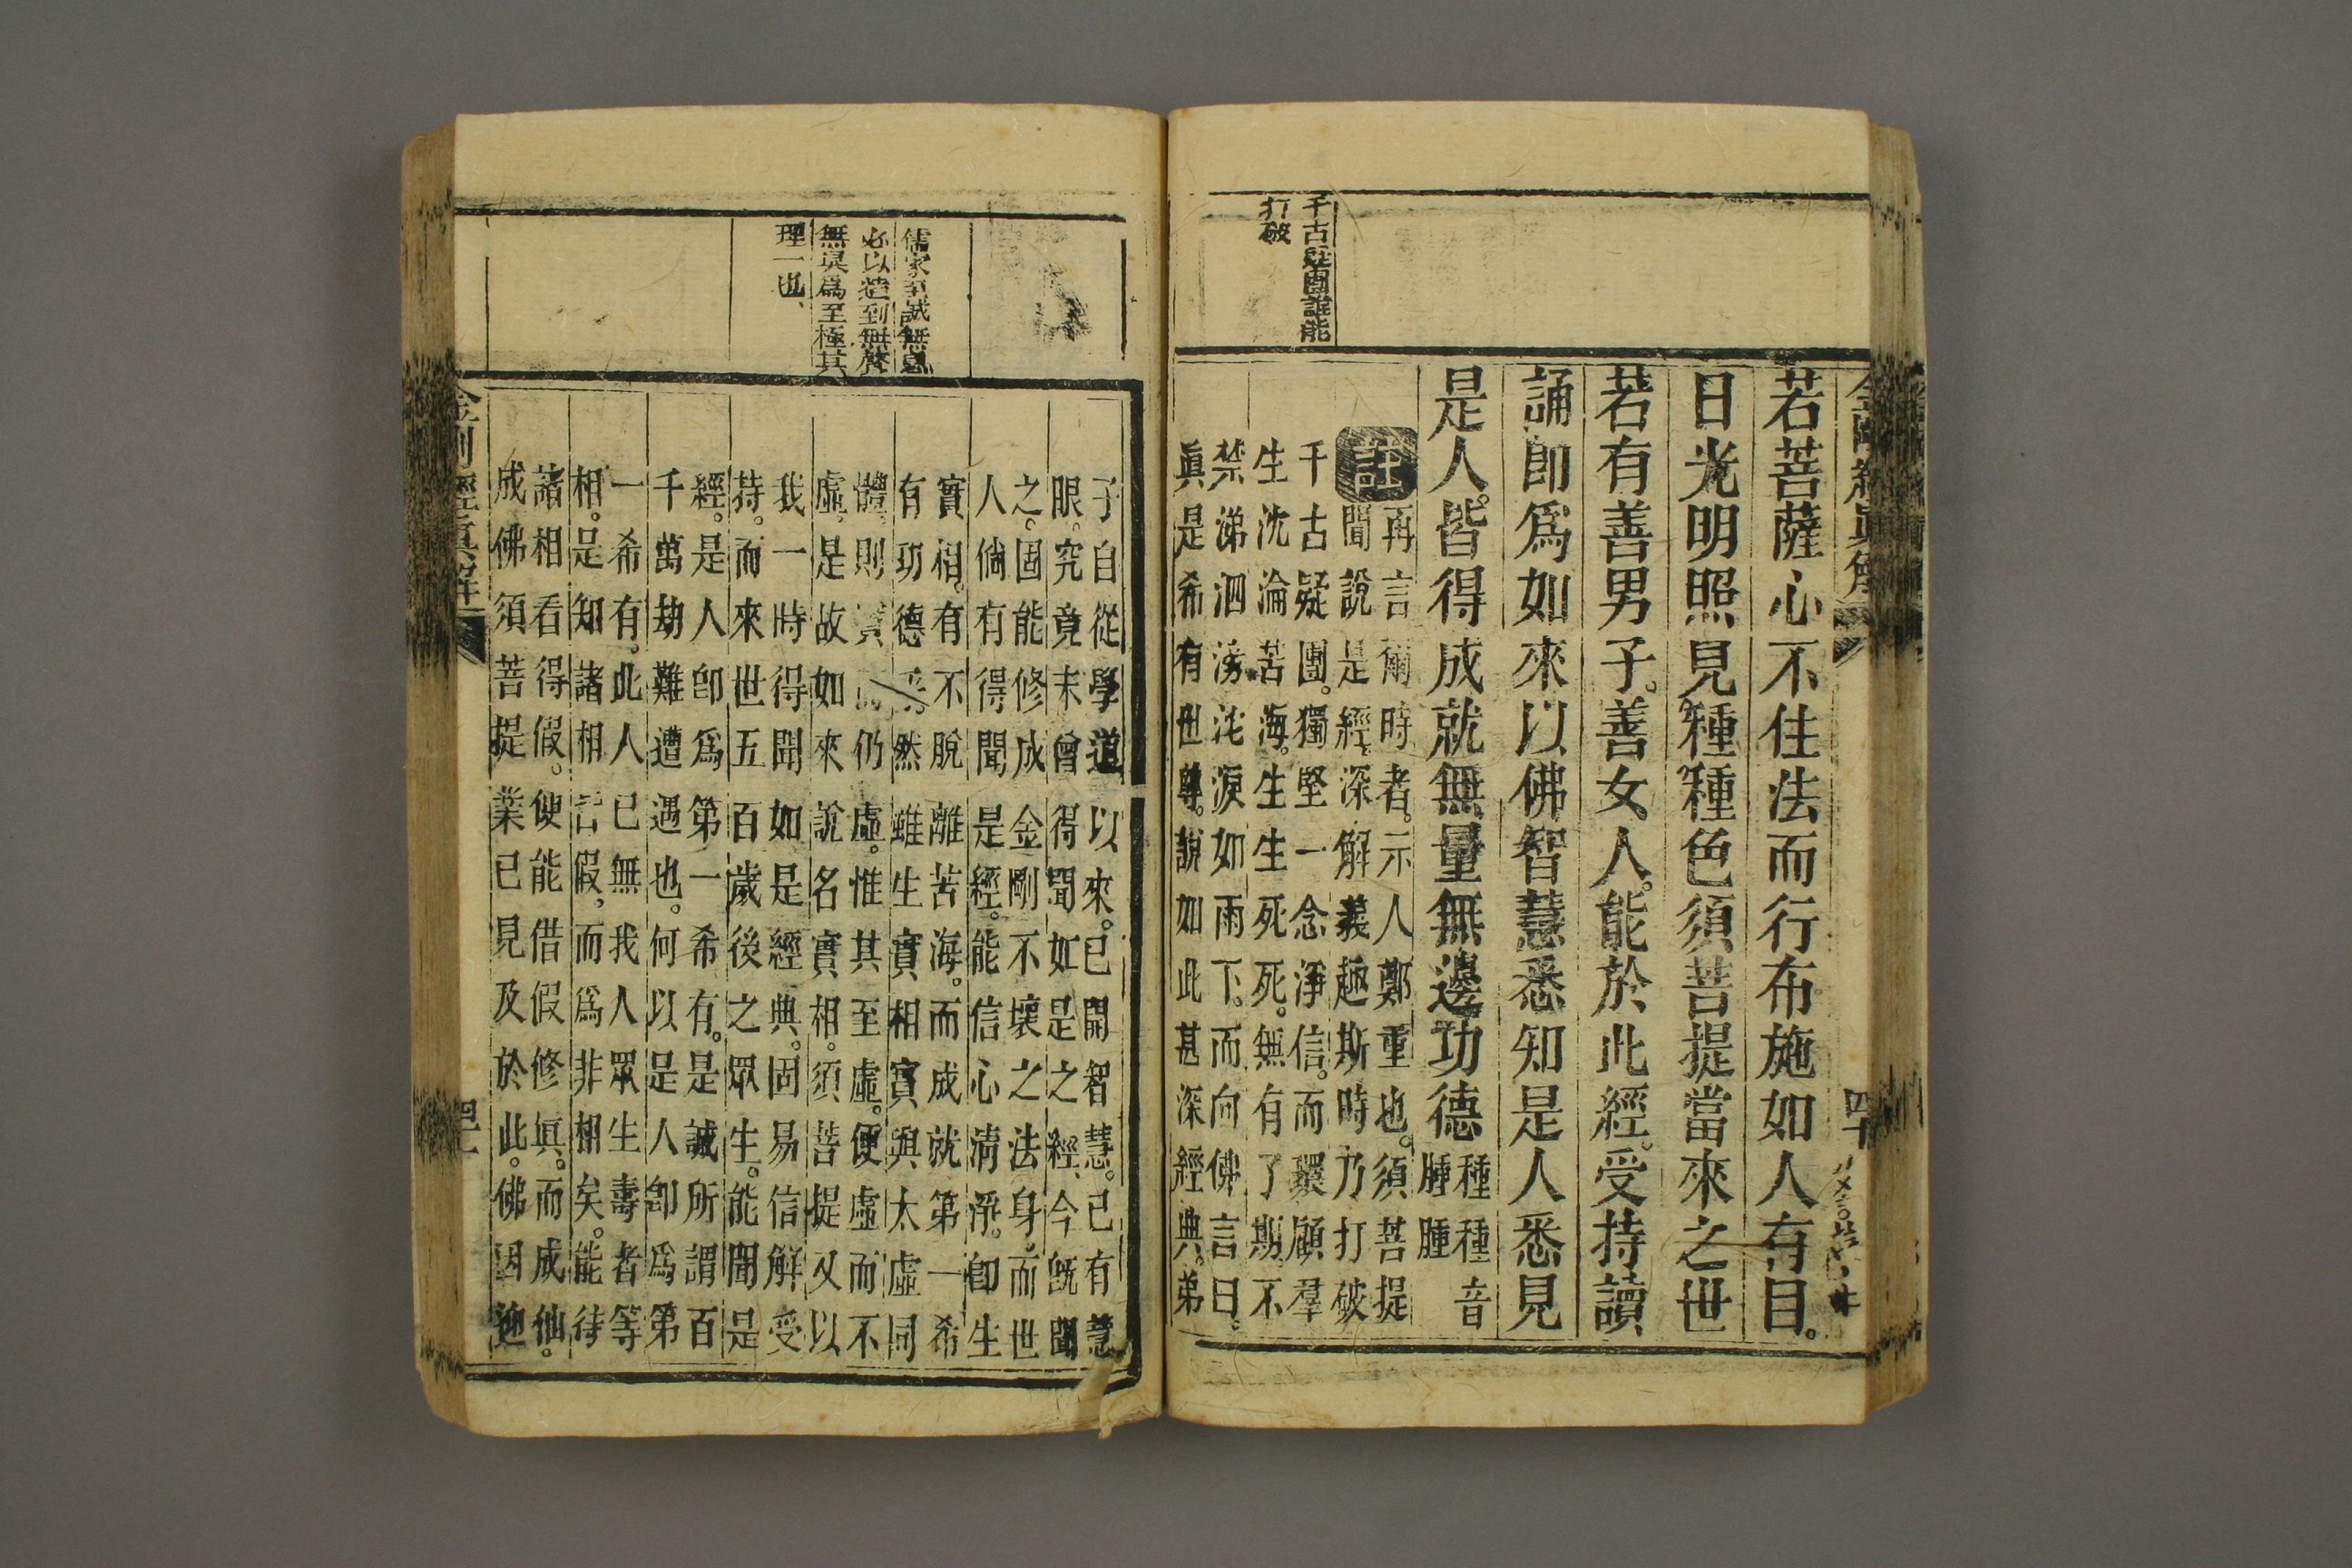 千古疑團誰能
打破
若菩薩心不住法而行布施如人有目。
日光明照見種種色須菩提當來之世
若有善男子。善女人。能於此經。受持讀
誦卽爲如來以佛智慧悉知是人悉見
是人。皆得成就無量無邊功德
種種音
腫腫
註
再言爾時者。示人鄭重也。須菩提
聞說是經。深解義趣斯時乃打破
千古疑團。獨堅一念淨信。而環顧羣
生沈淪苦海。生生生死死。無有了期。不
禁涕泗滂沱淚如雨下。而向佛言曰。
眞是希有世尊。說如此甚深經典。弟
四十
儒家至誠無息
必以造到無聲
無臭爲至極其
理一也、
子自從學道以來。已開智慧。已有慧
眼。究竟未曾得聞如是之經、今旣聞
之。固能修成金剛不壞之法身。而世
人倘有得聞是經。能信心淸淨。卽生
實相。有不脫離苦海。而成就第一希
有功德 。然雖生實相實與太虛同
體。則 仍虛。惟其至虛。便虛而不
虛。是故如來說名實相。須菩提又以
我一時得聞如是經典。固易信解受
持。而來世五百歲後之眾生。能聞是
經。是人卽爲第一希有。是誠所謂百
千萬劫難遭遇也。何以是人卽爲第
一希有。此人已無我人眾生壽者等
相。是知諸相 假、而爲非相矣。能待
諸相看得假。便能借假修眞。而成仙。
成佛須菩提業已見及於此。佛因迎
金剛經眞解